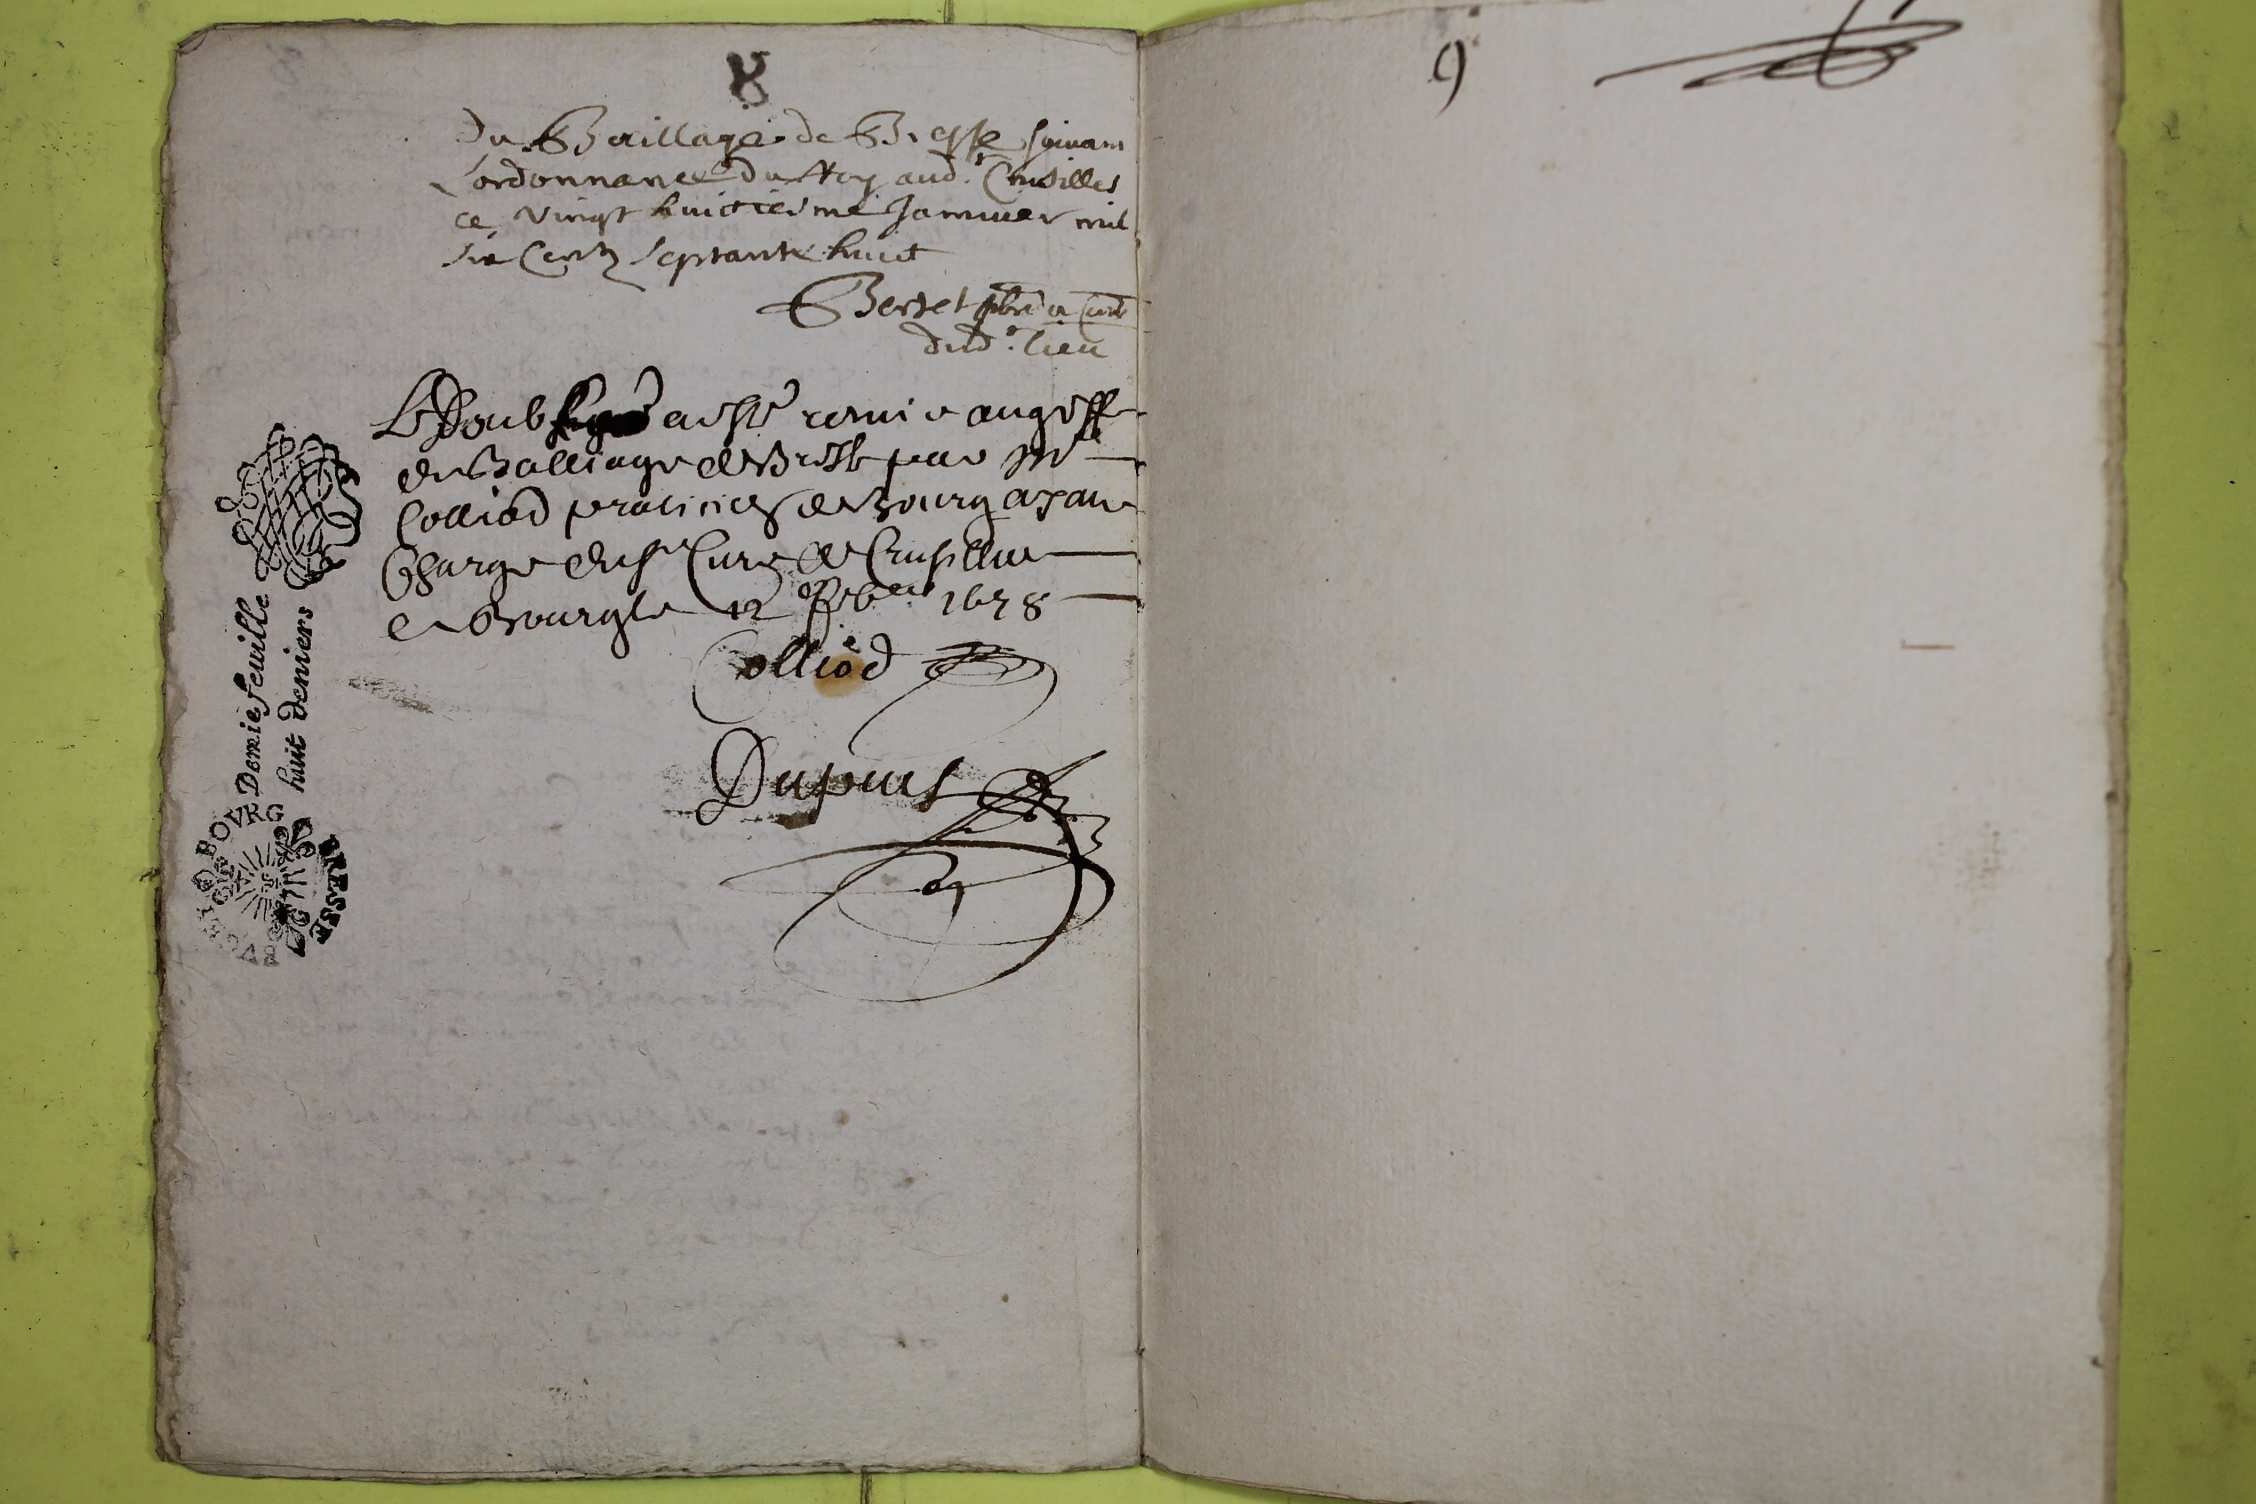 8
du Baillage de Bresse suivant
L'ordonnance du Roy aud.t Crusilles
ce vingt huictiesme Janvier mil
six Centz septante huict
Berset pbre et Curé
dud.t lieu
Le double a esté remis au greffe
du Balliage de Bresse par Me
Colliod praticien de Bourg ayant
Charge du sr Curé de Crusillie
A Bourg le 12 feber 1678
Colliod
Dupuis
Demie feuille
huit deniers
BOVRG
BRESSE
BVGEY
9